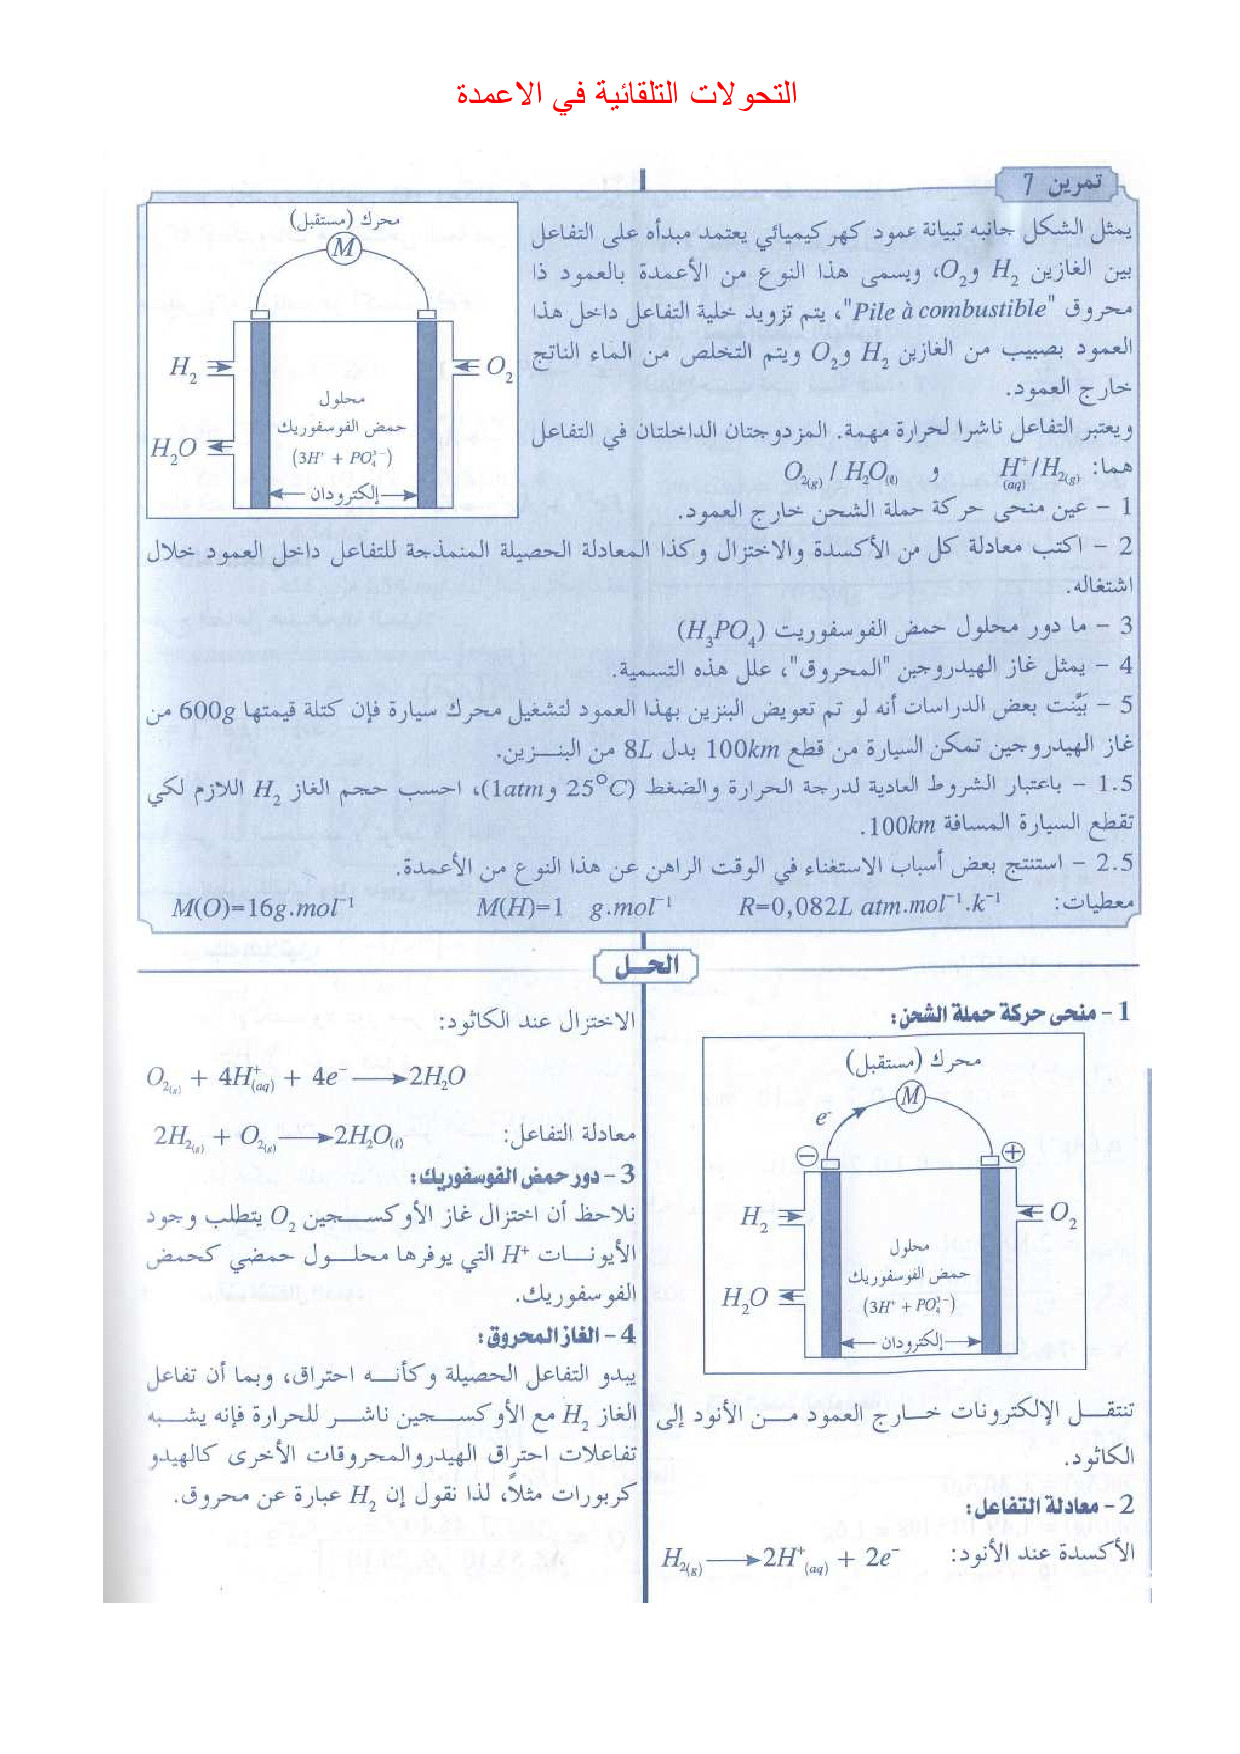 التحولات التلقائية في الاعمدة
تمرين 7
يمثل الشكل جانبه تبيانة عمود كهركيميائي يعتمد مبدأه على التفاعل
بين الغازين H₂ وO₂، ويسمى هذا النوع من الأعمدة بالعمود ذا
محروق "Pile à combustible"، يتم تزويد خلية التفاعل داخل هذا
العمود بصبيب من الغازين H₂ وO₂ ويتم التخلص من الماء الناتج
خارج العمود.
ويعتبر التفاعل ناشرا لحرارة مهمة. المزدوجتان الداخلتان في التفاعل
هما: H⁺(aq)/H₂(g) و O₂(g) / H₂O(ℓ)
محرك (مستقبل)
M
H₂
O₂
H₂O
محلول
حمض الفوسفوريك
(3H⁺ + PO₄³⁻)
إلكترودان
1 - عين منحى حركة حملة الشحن خارج العمود.
2 - اكتب معادلة كل من الأكسدة والاختزال وكذا المعادلة الحصيلة المنمذجة للتفاعل داخل العمود خلال
اشتغاله.
3 - ما دور محلول حمض الفوسفوريت (H₃PO₄)
4 - يمثل غاز الهيدروجين "المحروق"، علل هذه التسمية.
5 - بيَّنت بعض الدراسات أنه لو تم تعويض البنزين بهذا العمود لتشغيل محرك سيارة فإن كتلة قيمتها 600g من
غاز الهيدروجين تمكن السيارة من قطع 100km بدل 8L من البنـــزين.
1.5 - باعتبار الشروط العادية لدرجة الحرارة والضغط (25°C و1atm)، احسب حجم الغاز H₂ اللازم لكي
تقطع السيارة المسافة 100km.
2.5 - استنتج بعض أسباب الاستغناء في الوقت الراهن عن هذا النوع من الأعمدة.
معطيات: R=0,082L atm.mol⁻¹.k⁻¹ M(H)=1 g.mol⁻¹ M(O)=16g.mol⁻¹
الحـل
1 - منحى حركة حملة الشحن:
محرك (مستقبل)
M
e⁻
⊖
⊕
H₂
O₂
H₂O
محلول
حمض الفوسفوريك
(3H⁺ + PO₄³⁻)
إلكترودان
تنتقــل الإلكترونات خــارج العمود مــن الأنود إلى
الكاثود.
2 - معادلة التفاعل:
الأكسدة عند الأنود: H₂(g) ⟶ 2H⁺(aq) + 2e⁻
الاختزال عند الكاثود:
O₂(g) + 4H⁺(aq) + 4e⁻ ⟶ 2H₂O
معادلة التفاعل: 2H₂(g) + O₂(g) ⟶ 2H₂O(ℓ)
3 - دور حمض الفوسفوريك:
نلاحظ أن اختزال غاز الأوكســجين O₂ يتطلب وجود
الأيونــات H⁺ التي يوفرها محلــول حمضي كحمض
الفوسفوريك.
4 - الغاز المحروق:
يبدو التفاعل الحصيلة وكأنــه احتراق، وبما أن تفاعل
الغاز H₂ مع الأوكســجين ناشــر للحرارة فإنه يشــبه
تفاعلات احتراق الهيدرو والمحروقات الأخرى كالهيدو
كربورات مثلاً، لذا نقول إن H₂ عبارة عن محروق.